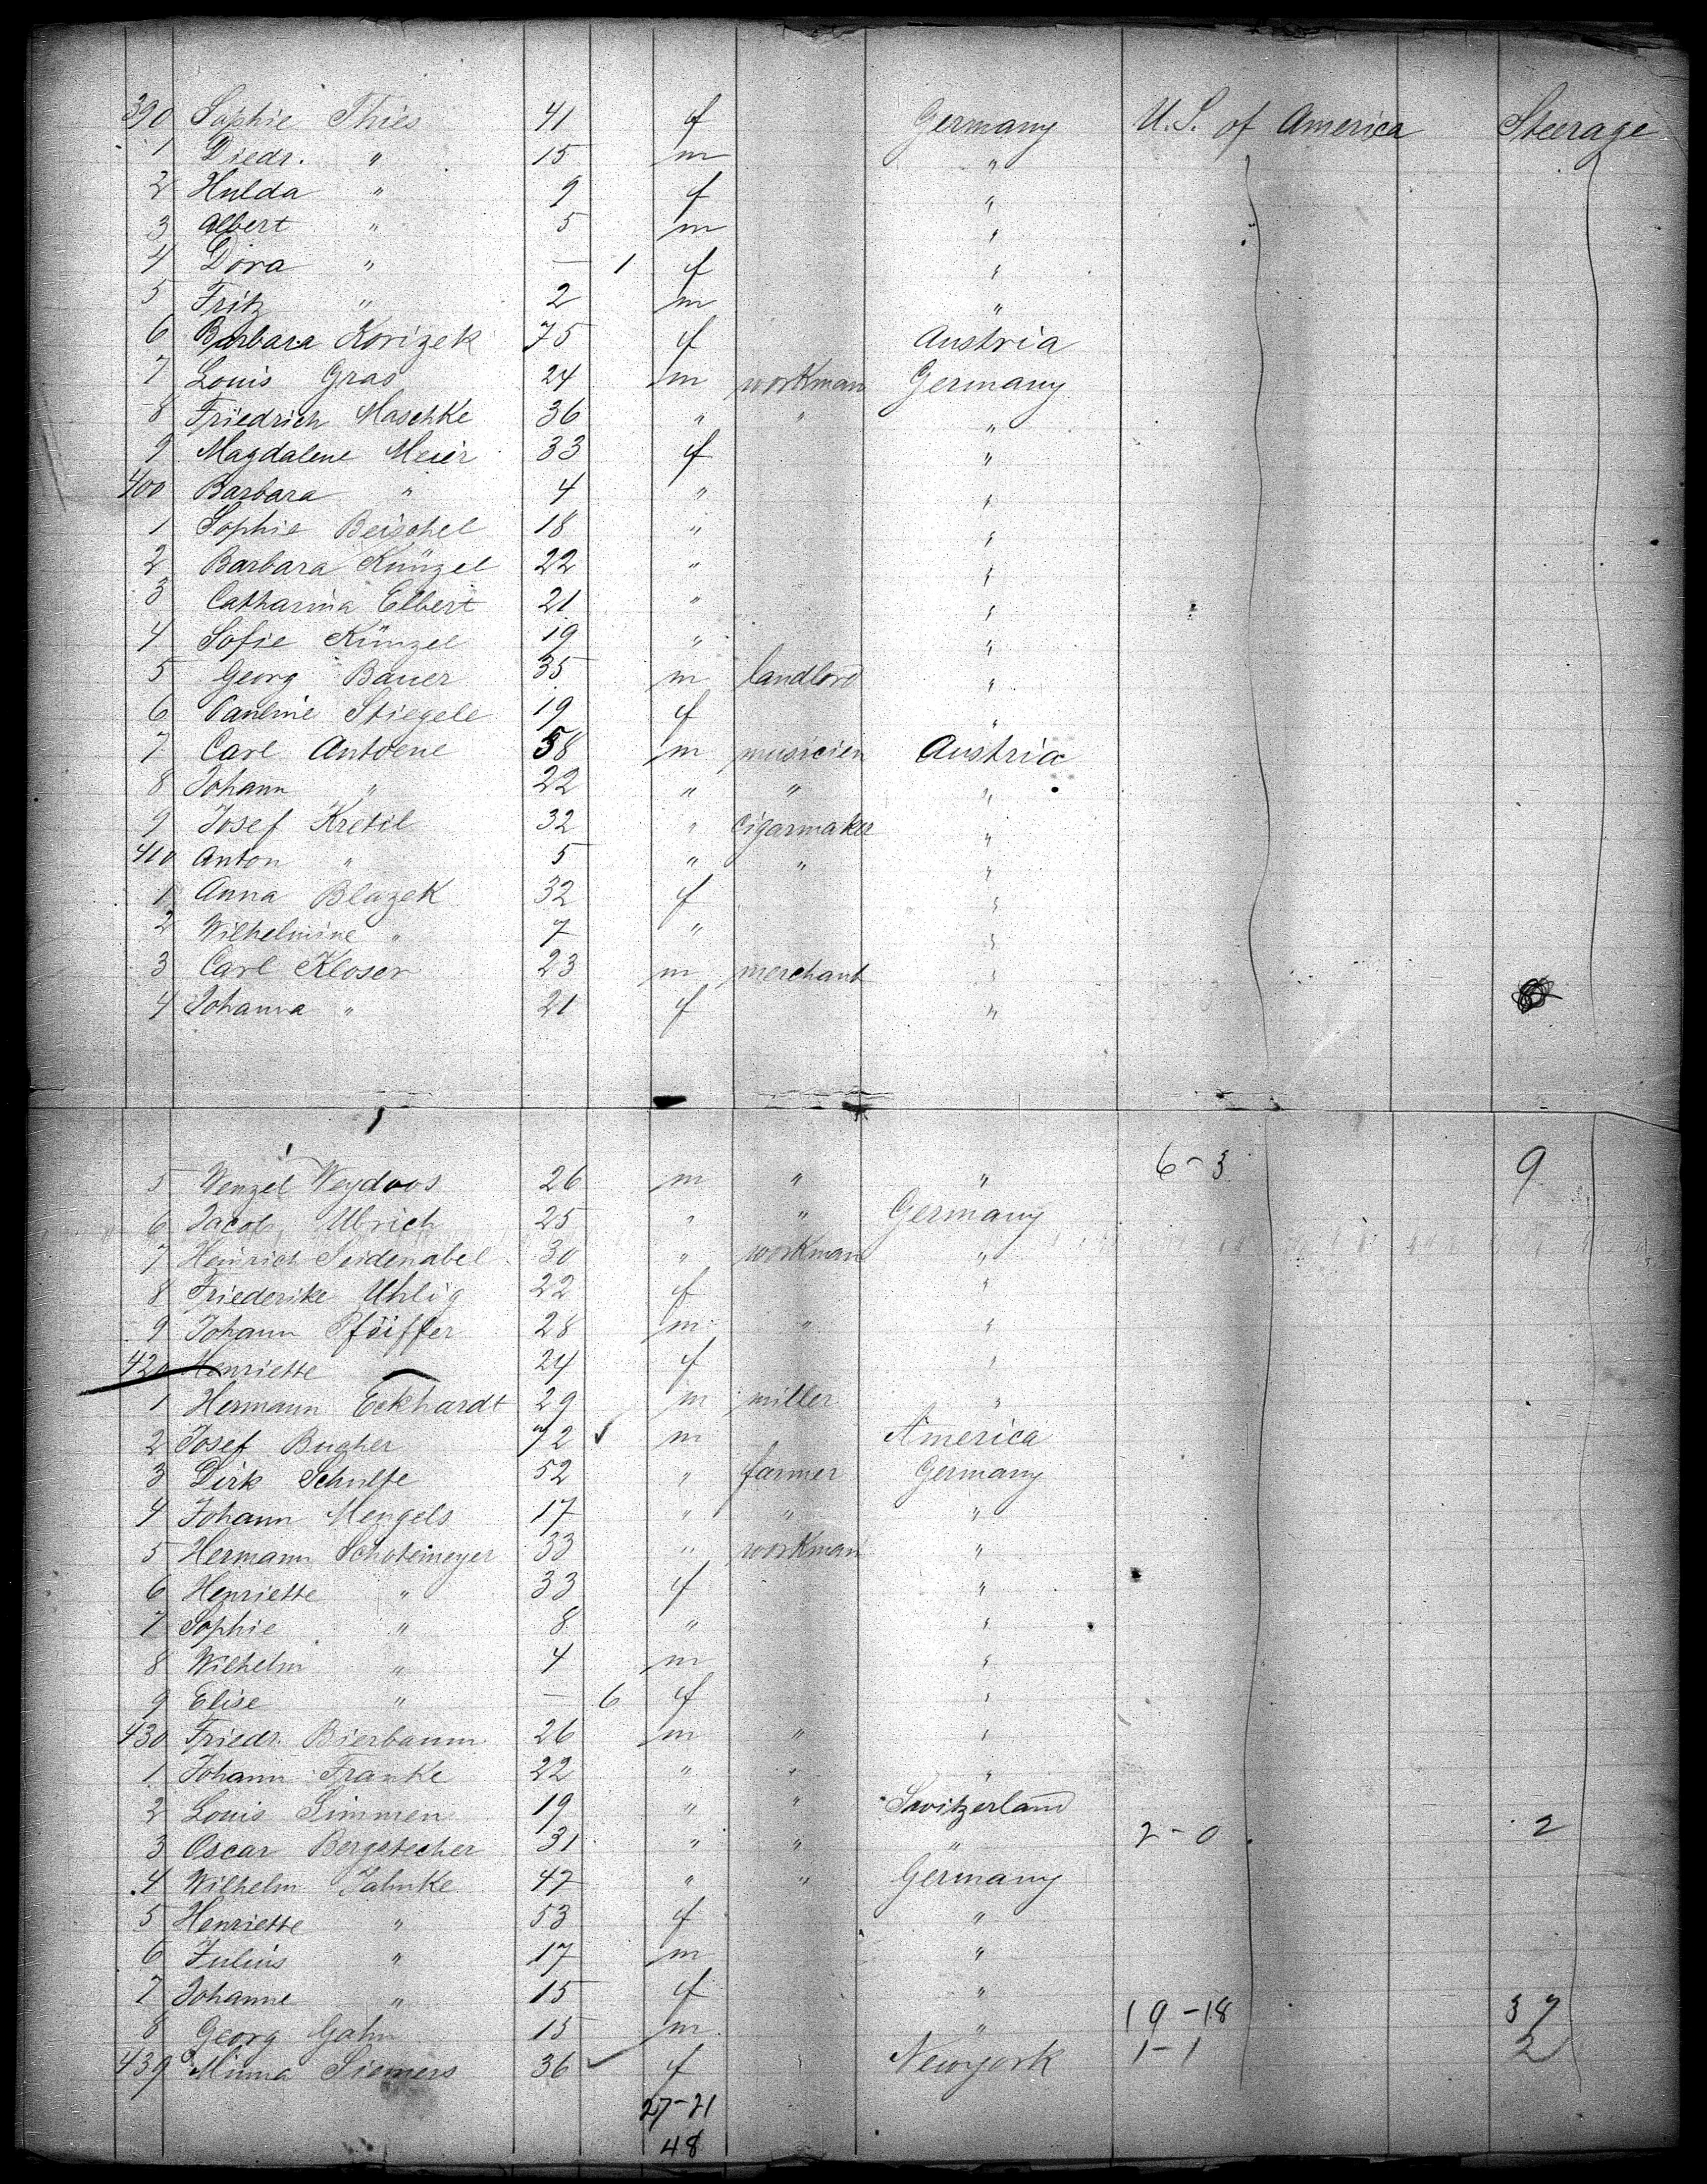 390 Sophie Thies 41 f Germany U.S. of America Steerage
1 Diedr. " 15 m "
2 Hulda " 9 f "
3 Albert " 5 m "
4 Dora " — 1 f "
5 Fritz " 2 m "
6 Barbara Korizek 75 f Austria
7 Louis Gras 24 m workman Germany
8 Friedrich Maschke 36 " " "
9 Magdalene Meier 33 f "
400 Barbara " 4 " "
1 Sophie Beischel 18 " "
2 Barbara Künzel 22 " "
3 Catharina Elbert 21 " "
4 Sofie Künzel 19 " "
5 Georg Bauer 35 m landlord "
6 Pauline Stiegele 19 f "
7 Carl Antoene 58 m musicien Austria
8 Johann " 22 " " "
9 Josef Kretil 32 " Cigarmaker "
410 Anton " 5 " " "
1 Anna Blazek 32 f "
2 Wilhelmine " 7 " "
3 Carl Kloser 23 m merchant "
4 Johanna " 21 f "
6-3 9
5 Wenzel Weydvos 26 m " "
6 Jacob Ulrich 25 " " Germany
7 Heinrich Seidenabel 30 " workman "
8 Friederike Uhlig 22 f "
9 Johann Pfeiffer 28 m " "
420 Henriette 24 f "
1 Hermann Eckhardt 29 m miller "
2 Josef Bugher 72 ✓ m America
3 Dirk Schulte 52 " farmer Germany
4 Johann Mengels 17 " " "
5 Hermann Schotemeyer 33 " workman "
6 Henriette " 33 f "
7 Sophie " 8 " "
8 Wilhelm " 4 m "
9 Elise " — 6 f "
430 Friedr. Bierbaum 26 m " "
1 Johann Franke 22 " " "
2 Louis Simmen 19 " " Switzerland
3 Oscar Bergstecher 31 " " " 2-0 2
4 Wilhelm Jahnke 47 " " Germany
5 Henriette " 53 f "
6 Julius " 17 m "
7 Johanne " 15 f "
8 Georg Gahn 15 m " 19-18 37
439 Minna Siemers 36 ✓ f Newyork 1-1 2
27-21
48